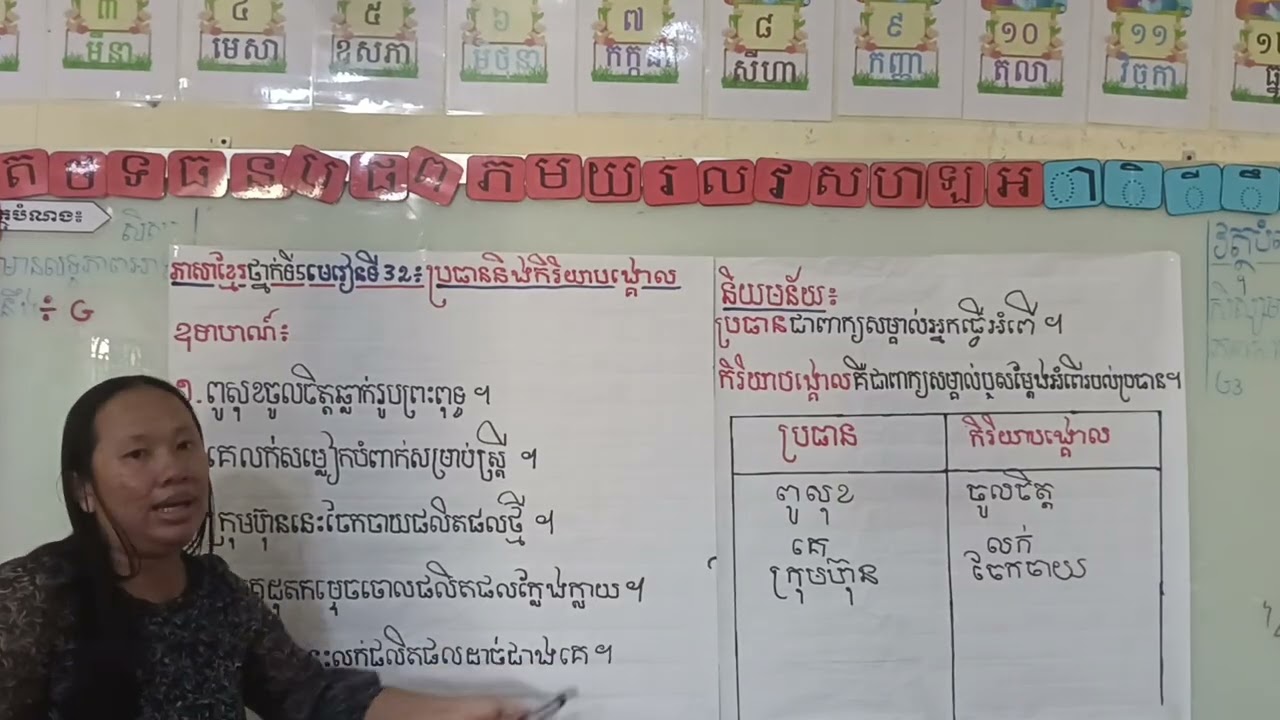 ៣ ៤ ៥ ៦ ៧ ៨ ៩ ១០ ១១
មីនា មេសា ឧសភា មិថុនា កក្កដា សីហា កញ្ញា តុលា វិច្ឆកា
ត ថ ទ ធ ន ប ផ ព ភ ម យ រ ល វ ស ហ ឡ អ
បំណង៖
ភាសាខ្មែរថ្នាក់ទី5មេរៀនទី32៖ប្រធាននិងកិរិយាបង្គោល
ឧទាហរណ៍៖
១.ពូសុខចូលចិត្តឆ្លាក់រូបព្រះពុទ្ធ ។
គេលក់សម្លៀកបំពាក់សម្រាប់ស្ត្រី ។
ក្រុមហ៊ុននេះចែកចាយផលិតផលថ្មី ។
ដុតកម្ទេចចោលផលិតផលក្លែងក្លាយ ។
នេះលក់ផលិតផលដាច់ជាងគេ ។
និយមន័យ៖
ប្រធានជាពាក្យសម្គាល់អ្នកធ្វើអំពើ ។
កិរិយាបង្គោលគឺជាពាក្យសម្គាល់ឬសម្តែងអំពើរបស់ប្រធាន។
ប្រធាន កិរិយាបង្គោល
ពូសុខ ចូលចិត្ត
គេ លក់
ក្រុមហ៊ុន ចែកចាយ